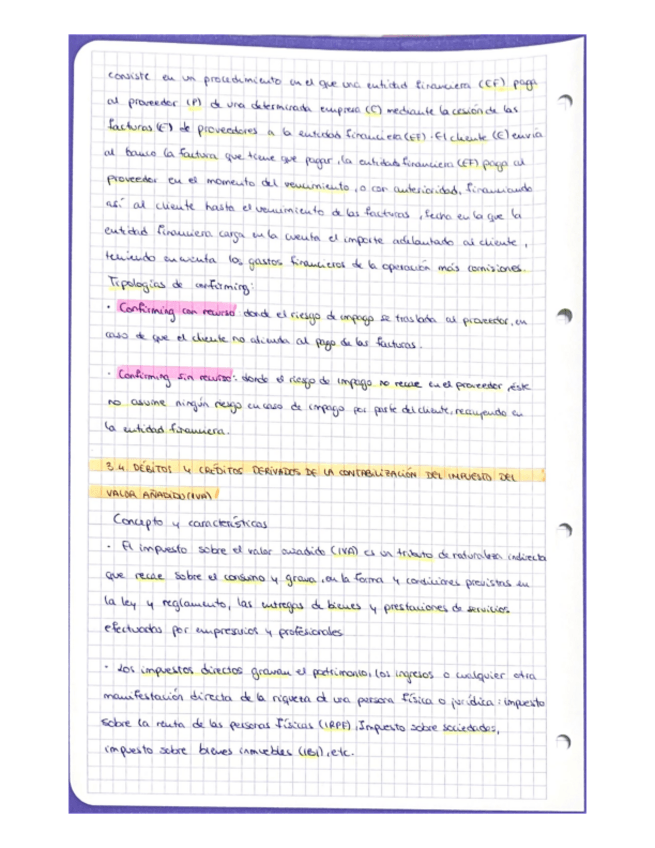 consiste en un procedimiento en el que una entidad financiera (EF) paga
al proveedor (P) de una determinada empresa (E) mediante la cesión de las
facturas (E) de proveedores a la entidad financiera (EF). El cliente (E) envía
al banco la factura que tiene que pagar, la entidad financiera (EF) paga al
proveedor en el momento del vencimiento, o con anterioridad, financiando
así al cliente hasta el vencimiento de las facturas, fecha en la que la
entidad financiera carga en la cuenta el importe adelantado al cliente,
teniendo en cuenta los gastos financieros de la operación más comisiones.
Tipologías de confirming:
· Confirming con recurso: donde el riesgo de impago se traslada al proveedor, en
caso de que el cliente no atienda al pago de las facturas.
· Confirming sin recurso: donde el riesgo de impago no recae en el proveedor, éste
no asume ningún riesgo en caso de impago por parte del cliente, recayendo en
la entidad financiera.
3.4. DÉBITOS Y CRÉDITOS DERIVADOS DE LA CONTABILIZACIÓN DEL IMPUESTO DEL
VALOR AÑADIDO (IVA)
Concepto y características
· El impuesto sobre el valor añadido (IVA) es un tributo de naturaleza indirecta
que recae sobre el consumo y grava, en la forma y condiciones previstas en
la ley y reglamento, las entregas de bienes y prestaciones de servicios
efectuadas por empresarios y profesionales
· Los impuestos directos gravan el patrimonio, los ingresos o cualquier otra
manifestación directa de la riqueza d una persona física o jurídica: impuesto
sobre la renta de las personas físicas (IRPF), Impuesto sobre sociedades,
impuesto sobre bienes inmuebles (IBI), etc.